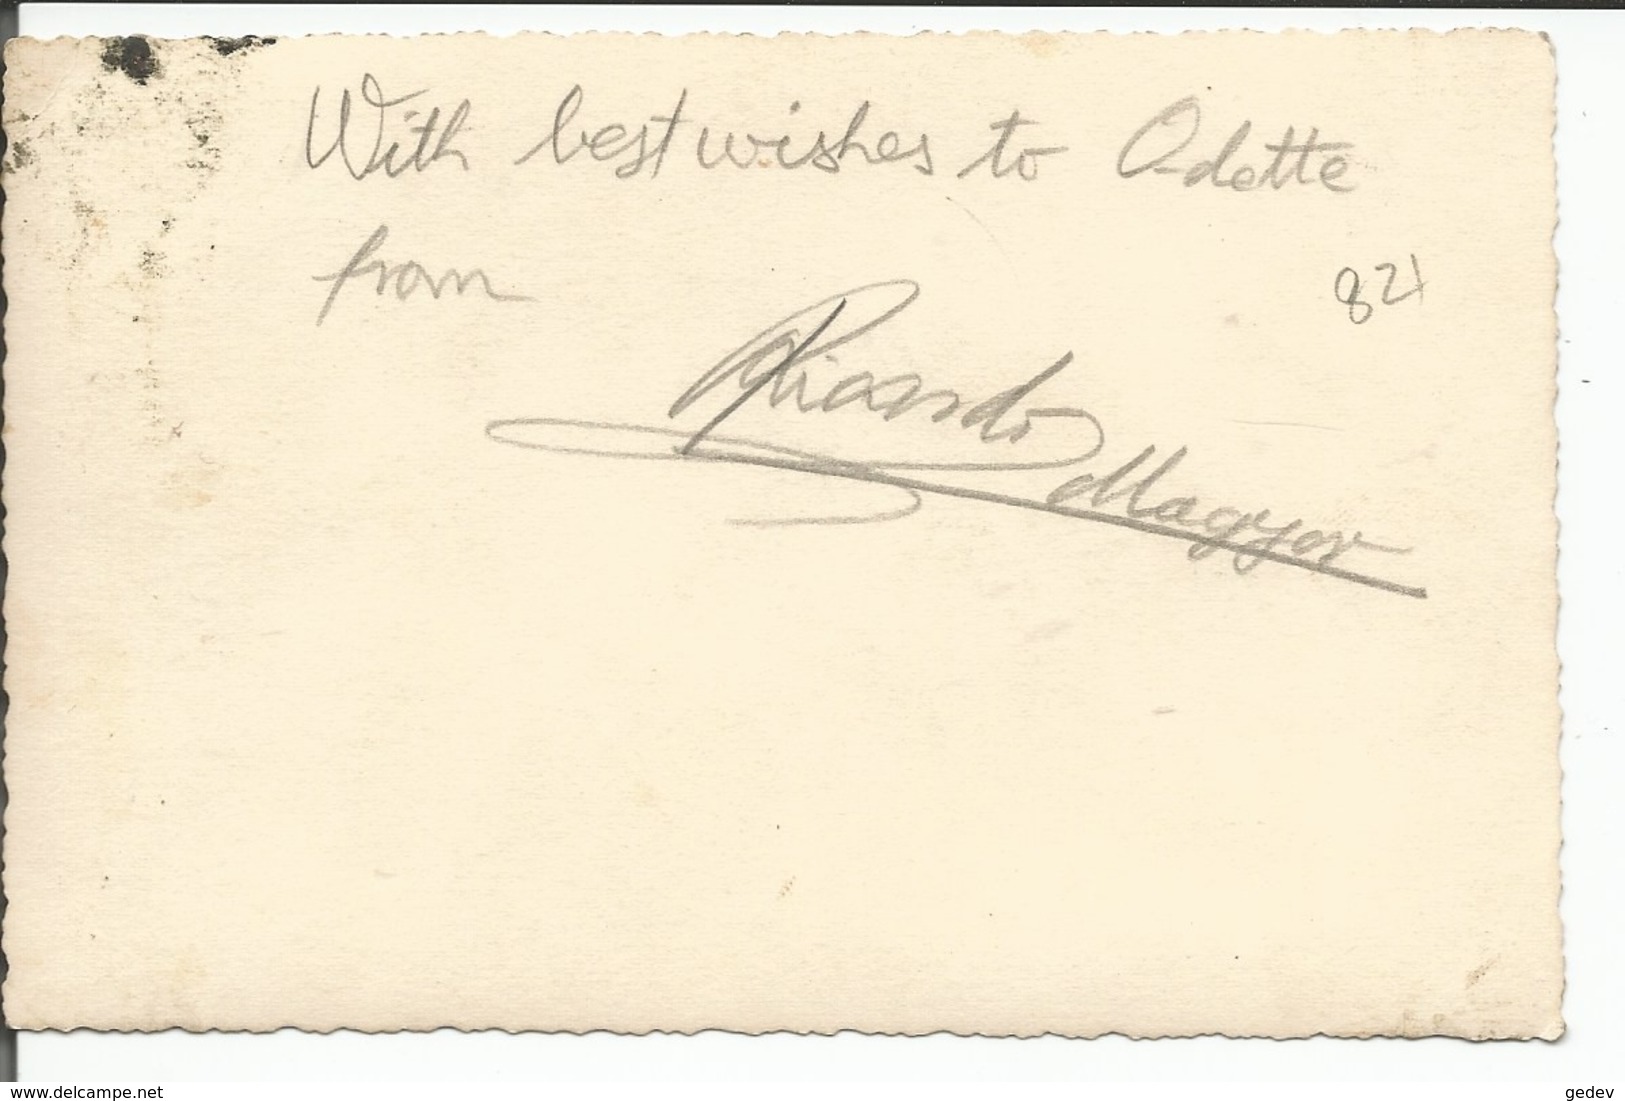 With best wishes to Odette
from
821
Ricardo
Magyor
www.delcampe.net
gedev